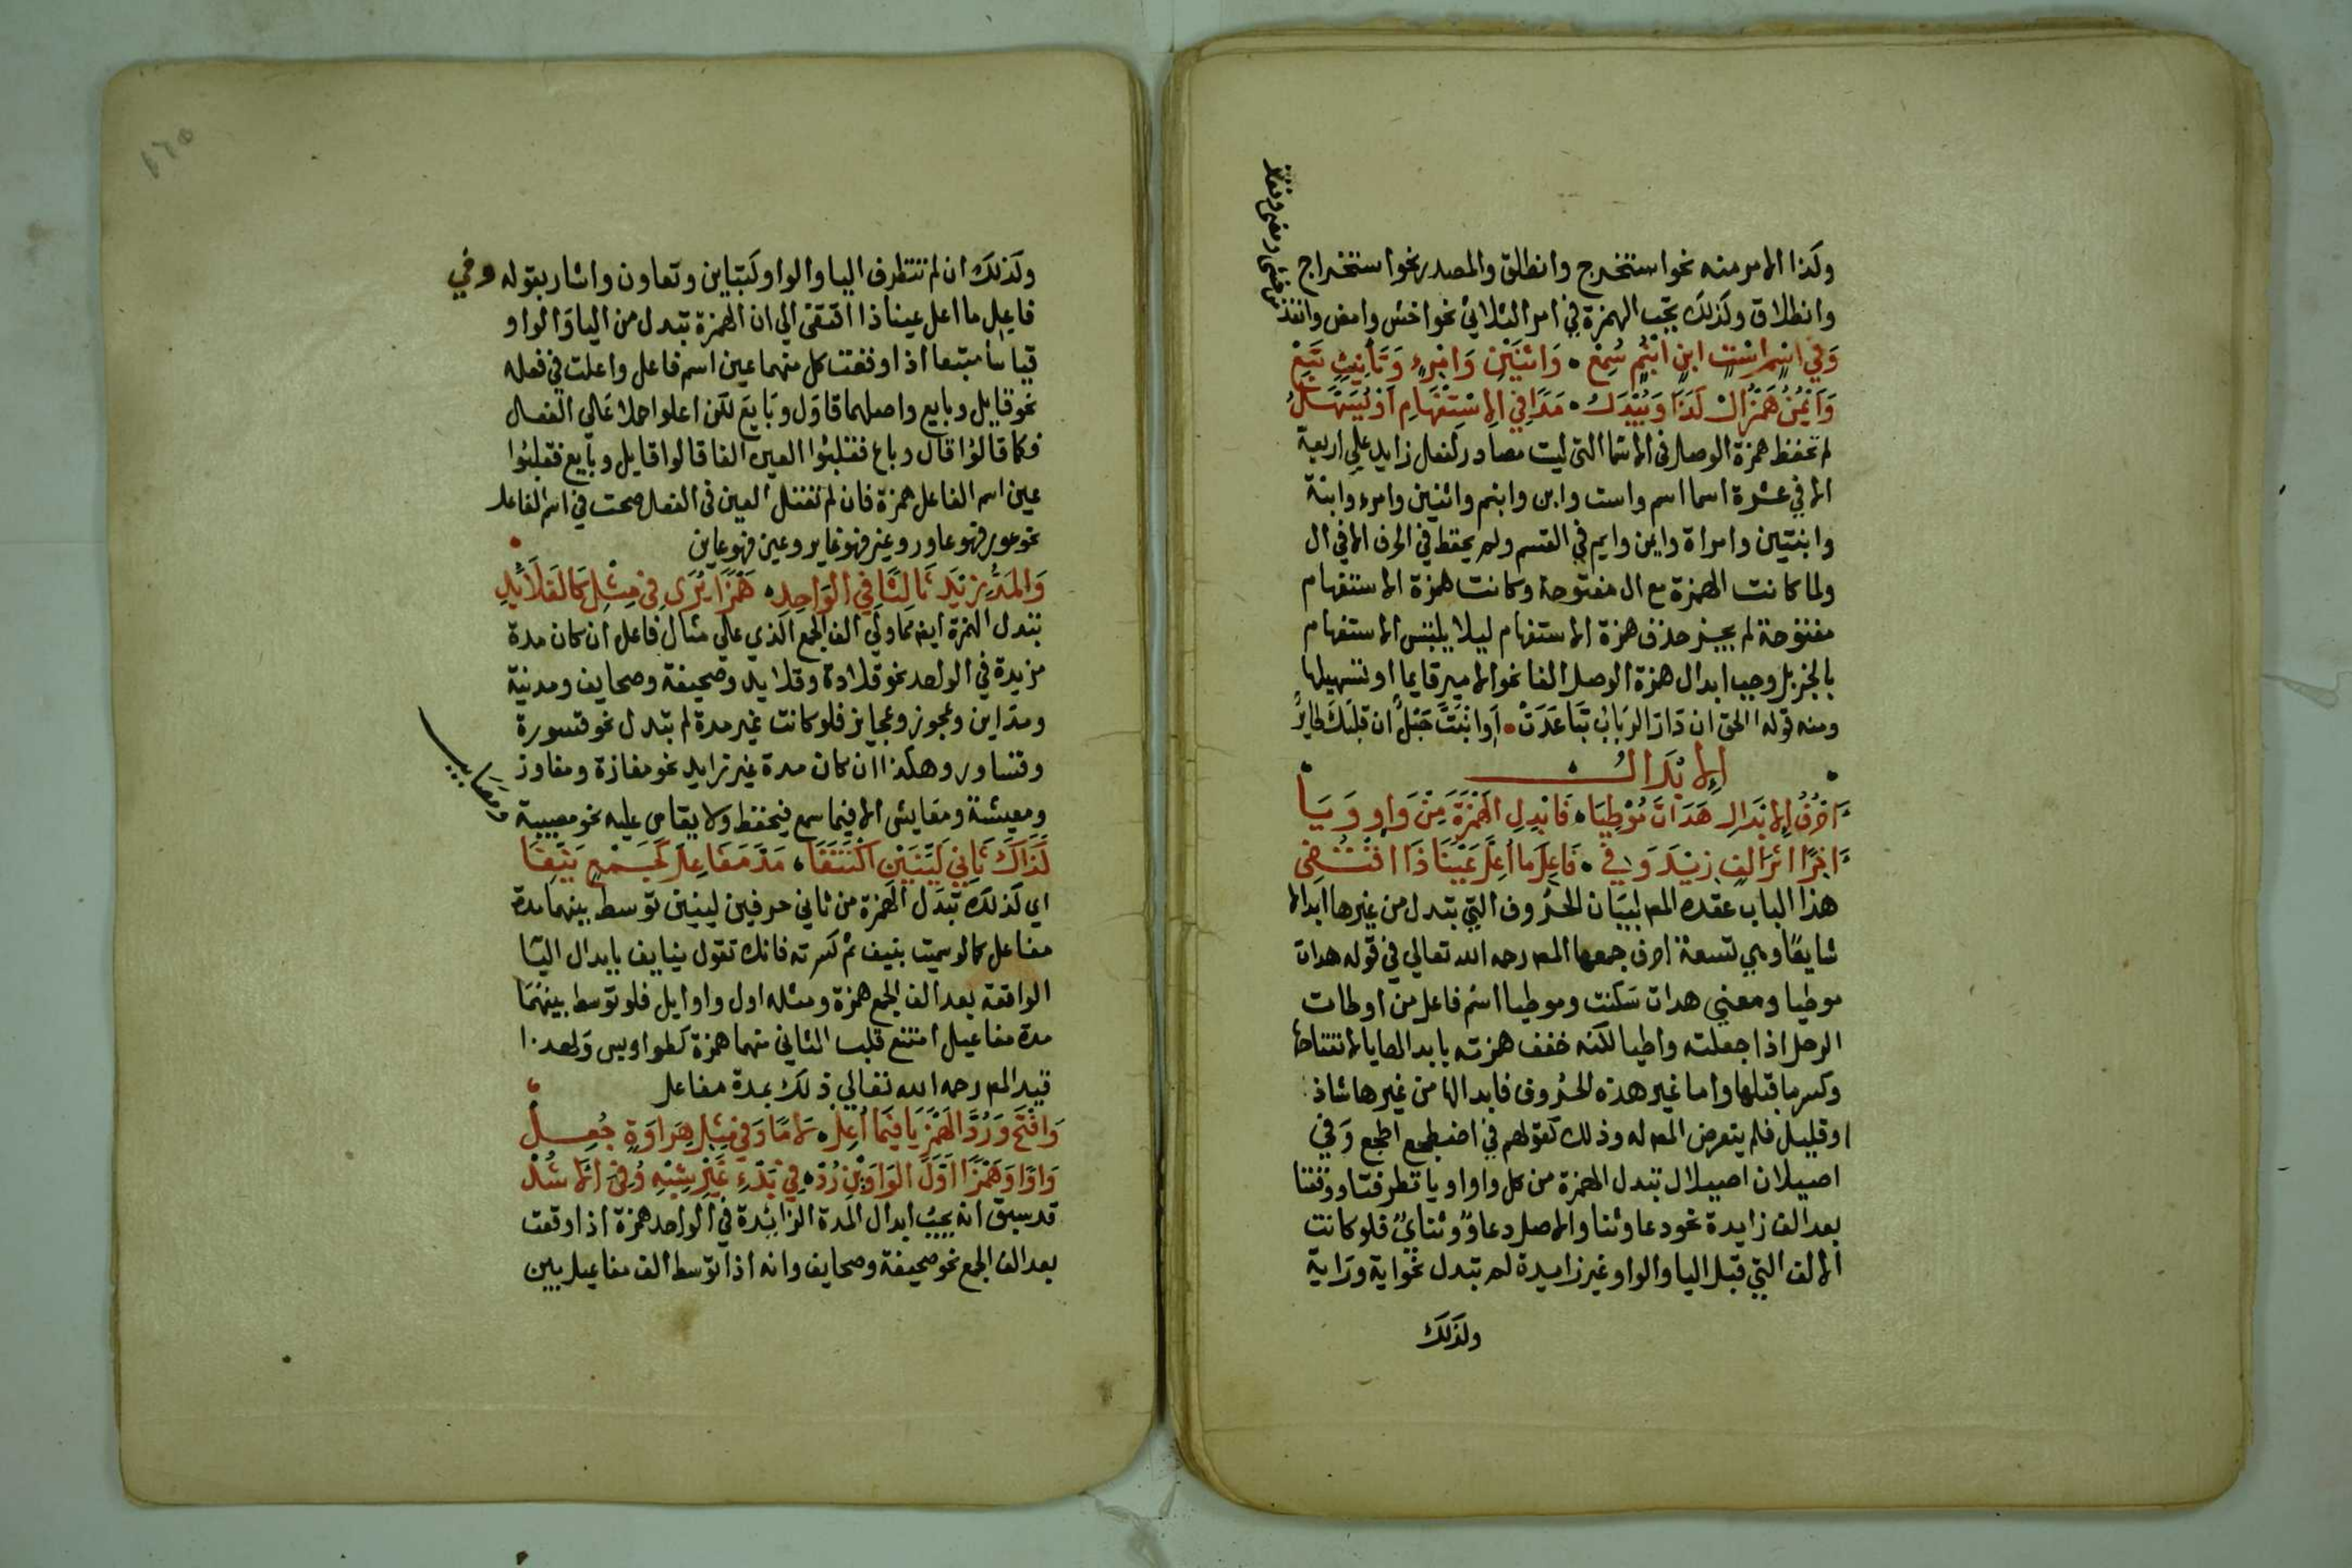 ولذا الامر منه نحو استخرج وانطلق والمصدر نحو استخراج
وانطلاق وكذلك تجب الهمزة في امر الثلاثي نحو اخش وامض وانفذ
من خشى ومضى ونفذ
وَفي اسْمٍ اسْتٍ ابنٍ ابْنُمٍ سُمِعْ • وَاثْنَيْنِ وَامْرِءٍ وَتَأنِيثٍ تَبِعْ
وَايْمُنُ هَمْزُ الْ كَذَا وَيُبْدَلُ • مَدًا فِي الِاسْتِفْهَامِ اَوْ يُسَهَّلُ
لم تحفظ همزة الوصل في الاسما التي ليست مصادر لفعل زايد على اربعة
الا في عشرة اسما اسم واست وابن وابنم واثنين وامرء وابنة
وابنتين وامراة وايمن وايم في القسم ولم يحفظ في الحرف الا في ال
ولما كانت الهمزة مع ال مفتوحة وكانت همزة الاستفهام
مفتوحة لم يجز حذف همزة الاستفهام ليلا يلتبس الاستفهام
بالخبر بل وجب ابدال همزة الوصل الفا نحو الامير قايما او تسهيلها
ومنه قوله االحق ان دَارُ الرَبَابُ تَبَاعَدَتْ • اَوِانْبَتَّ حَبْلٌ ان قلبَك طايرُ
الاِبْدَالُ
اَحْرُفُ الاِبْدَالِ هَدَاتَ مُوْطِيَا • فَابْدِلِ الهَمْزَةَ مِنْ وَاوٍ وَيَا
اخِرًا اثْرَ الِفٍ زِيْدَ وَفِي • فَاعِلِ مَا اُعِلَّ عَيْنًا ذَا اقْتُضِى
هذا الباب عقده المص لبيَان الحُرُوف التي تبدل من غيرها ابدالا
شايعًا وهي تسعة احرف جمعها المص رحمه الله تعالي في قوله هدات
موطيا ومعنى هدات سَكنت وموطيا اسْم فاعل من اوطات
الرحل اذا جعلته واطيا لكنه خفف همزته بابدالها يا لانفتاحها
وكسر ما قبلها واما غير هذه الحُرُوف فابدالها من غيرها شاذ
او قليل فلم يتعرض المص له وذلك كقولهم في اضطجع الطجع وَفي
اصيلان اصيلال تبدل الهمزة من كل واو او يا تطرفتا ووقعتا
بعد الف زايدة نحو دعا وثنا والاصل دعاوٌ وثنايٌ فلو كانت
الالف التي قبل اليا والواو غير زايدة لم تبدل نحو اية ورَاية
ولذلك
وكذلك ان لم تتطرف اليا والواو كتباين وتعاون واشار بقوله وفي
فاعِلِ ما اعل عينا ذا اقتفى الي ان الهمزة تبدل من اليا وَالواو
قياسًا متبعا اذا وقعت كل منهما عين اسم فاعل واعلت في فعله
نحو قايل وبايع واصلهما قاوَل وبَايعَ لكن اعلوا حملا عَلى الفعال
فكما قالُوا قال وباع فقلبُوا العين الفا قالوا قايل وبَايع فقلبُوا
عين اسم الفاعل همزة فان لم تعتل العين في الفعل صحت في اسم الفاعل
نحو عور فهو عاور وعين فهو عاين
وَالمَدُّ زِيْدَ ثَالِثًا فِي الوَاحِدِ • هَمْزًا يُرَى فِي مِثْلِ كَالقَلَائِدِ
تبدل الهمزة ايضا مما ولي الف الجمع الذي عَلي مثال فاعل ان كان مدة
مزيدة في الواحد نحو قلادة وقلايد وصحيفة وصحايف ومدينة
ومدَاين وعجوز وعجايز فلو كانت غير مدة لم تبدل نحو قسورة
وقساور وهكذا ان كان مدة غير زايد نحو مفازة ومفاوز
ومعيشة ومعَايش الا فيما سمع فيحفظ ولا يقاس عليه نحو مصيبة
ومصَايب
كَذَاكَ ثَانِي لَيِّنَيْنِ اكْتَنَفَا • مَدَّ مَفَاعِلَ كَجَمْعٍ نَيِّفَا
اي كذلك تبدَل الهمزة من ثاني حرفين لينين توسط بينهما مدة
مفاعل كما لو سميت بنيف ثم كسرته فانك تقول نيايف بابدال اليا
الواقعة بعد الف الجمع همزة ومثله اول واوايل فلو توسط بينهُمَا
مدة مفاعيل امتنع قلب الثاني منهما همزة كطواويس وَلهذا
قيد المص رحمه الله تعالي ذلك بمدة مفاعل
وَافْتَحْ وَرُدَّ الهَمْزَ يَا فيمَا اُعِلْ • لامًا وَفي مِثْلِ هِرَاوَةٍ جُعِلْ
وَاوًا وَهَمْزًا اَوَّلَ الوَاوَيْنِ رُدْ • فِي بَدْءِ غَيْرِ شِبْهِ وُفِي الاشُدْ
قد سبق انه يجبُ ابدال المدة الزايدة في الواحد همزة اذا وقعت
بعد الف الجمع نحو صحيفة وصحايف وانه اذا توسط الف مفاعيل بين